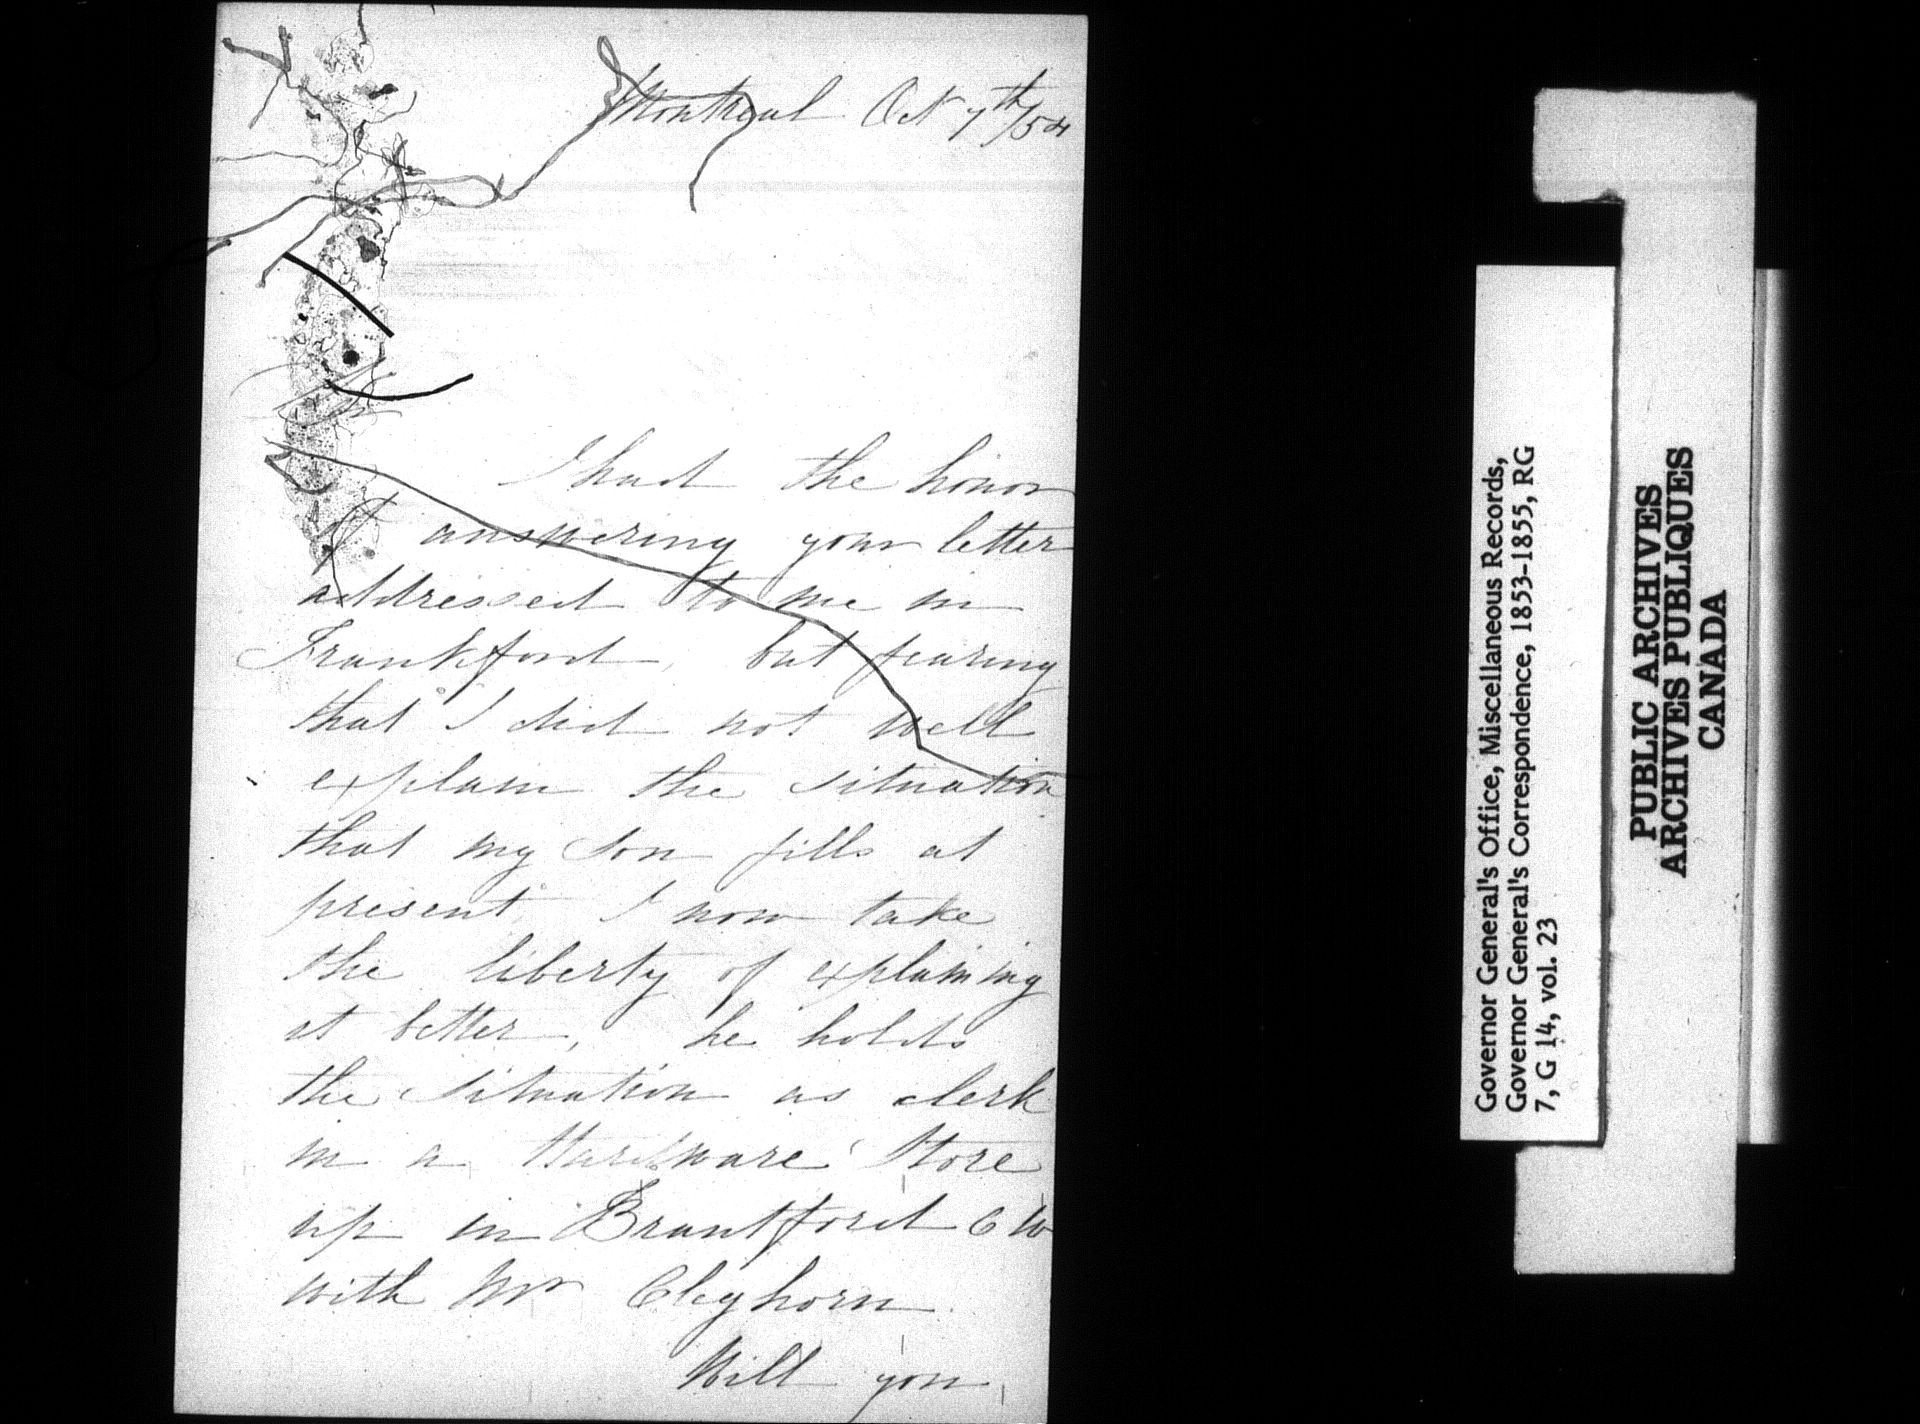 Montreal Oct 7th/54
I had the honor
of answering your letter
addressed to me in
Frankford, but fearing
that I did not well
explain the situation
that my Son fills at
present, I now take
the liberty of explaining
it better, he holds
the situation as clerk
in a Hardware Store
up in Brantford C W
with Mr Cleghorn.
Will you
Governor General's Office, Miscellaneous Records,
Governor General's Correspondence, 1853-1855, RG
7, G 14, vol. 23
PUBLIC ARCHIVES
ARCHIVES PUBLIQUES
CANADA